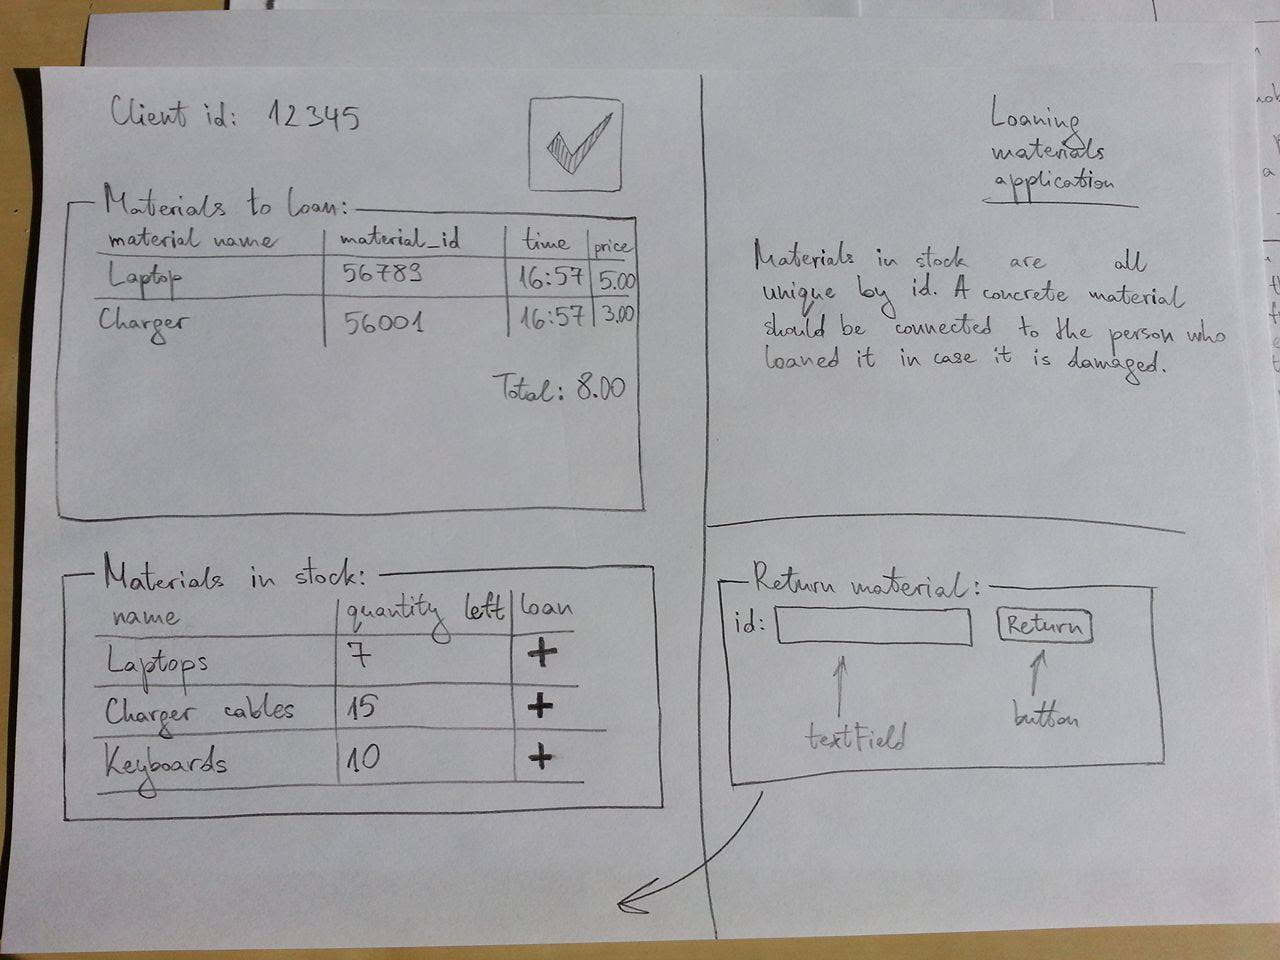 Client id: 12345
Materials to loan:
material name material_id time price
Laptop 56789 16:57 5.00
Charger 56001 16:57 3.00
Total: 8.00
Materials in stock:
name quantity left loan
Laptops 7 +
Charger cables 15 +
Keyboards 10 +
Loaning
materials
application
Materials in stock are all
unique by id. A concrete material
should be connected to the person who
loaned it in case it is damaged.
Return material:
id: Return
textField button